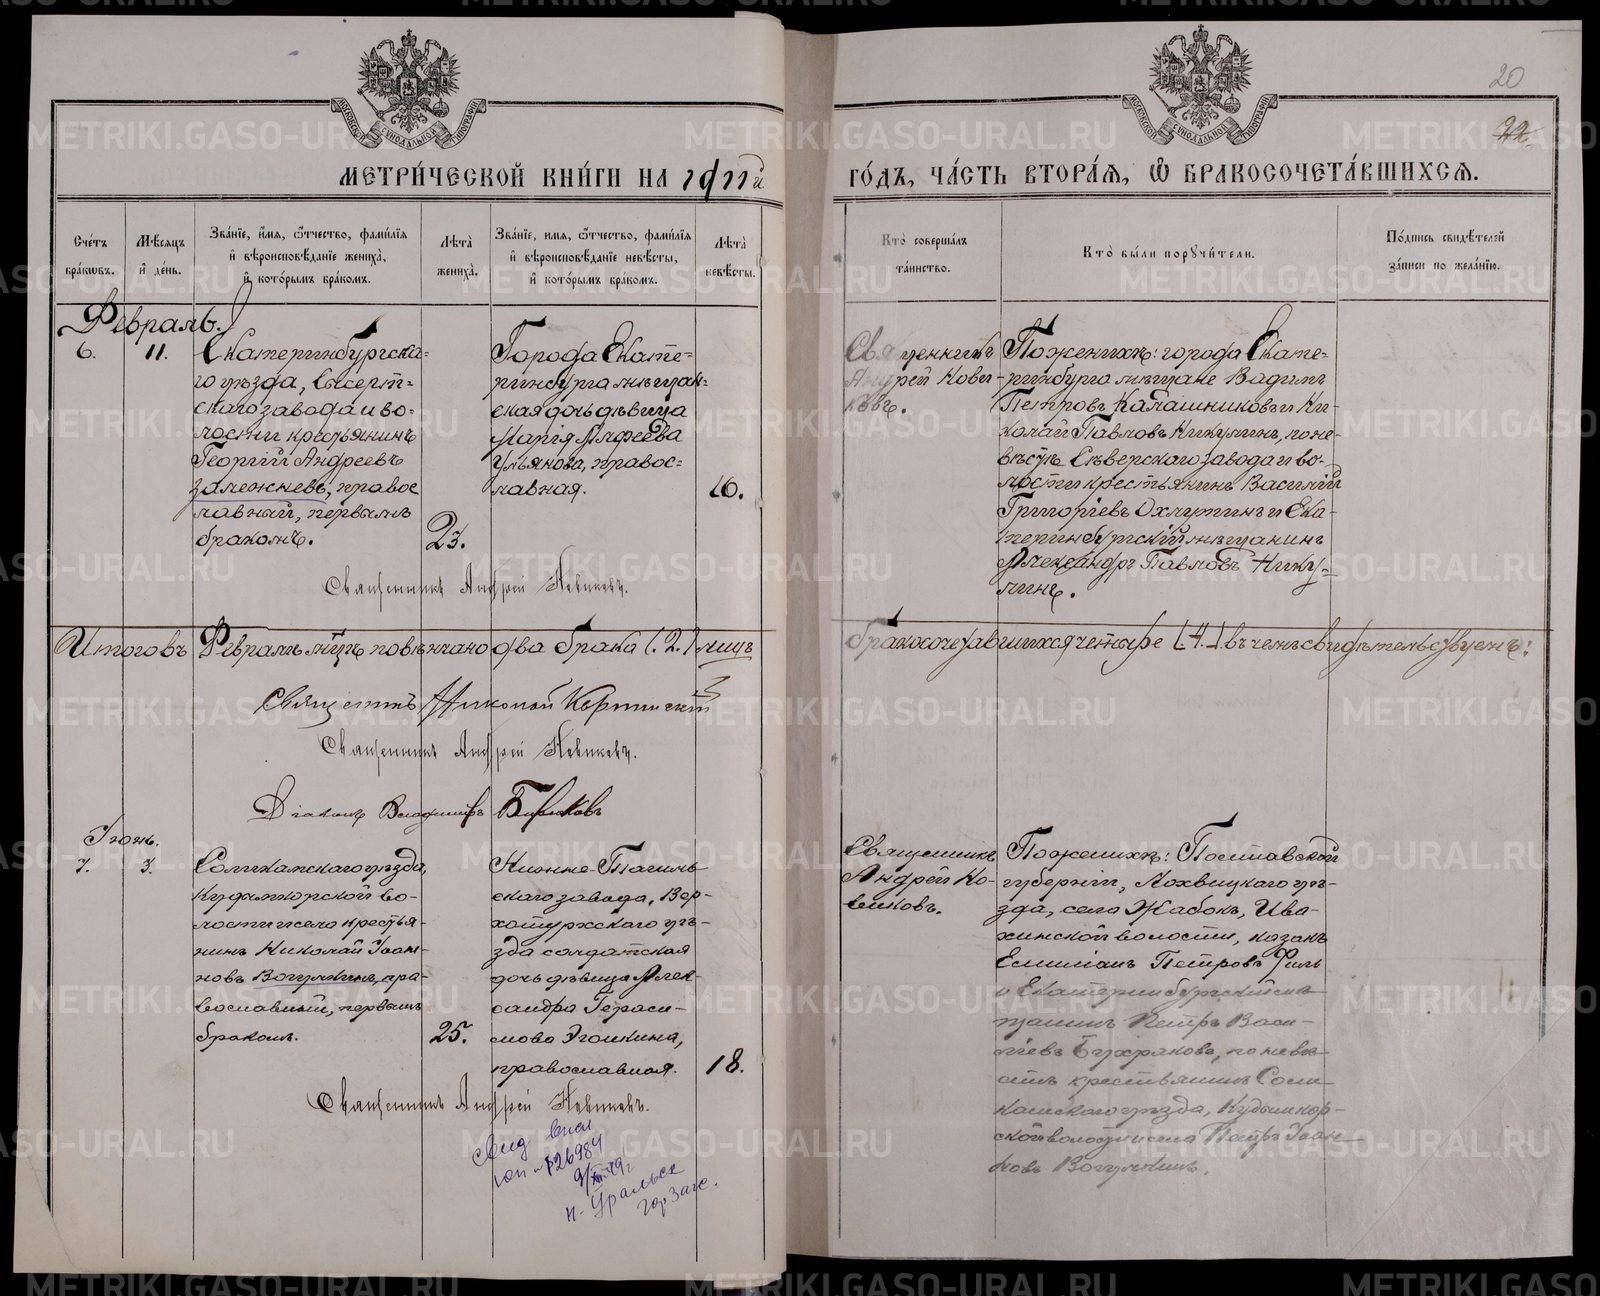 20
22.
МОСКОВСКОЙ СѴНОДАЛЬНОЙ ТИПОГРАФІИ
МОСКОВСКОЙ СѴНОДАЛЬНОЙ ТИПОГРАФІИ
МЕТРИ́ЧЕСКОЙ КНИ́ГИ НА 1911й
ГО́ДЪ, ЧА́СТЬ ВТОРА́Я, Ѽ БРАКОСОЧЕТА́ВШИХСЯ.
Сче́тъ бра́кѡвъ.
Мѣ́сяцъ и҆ де́нь.
Зва́нїе, и҆́мя, ѻ҆́тчество, фами́лїя и҆ вѣроисповѣ́данїе жениха̀, и҆ кото́рымъ бра́комъ.
Лѣ́та жениха̀.
Зва́нїе, и҆́мя, ѻ҆́тчество, фами́лїя и҆ вѣроисповѣ́данїе невѣ́сты, и҆ кото́рымъ бра́комъ.
Лѣ́та невѣ́сты.
Кто̀ соверша́лъ та́инство.
Кто̀ бы́ли порꙋчи́тели.
По́дпись свидѣ́телей за́писи по жела́нїю.
Февраль.
6.
11.
Екатеринбургска-
го уѣзда, Сысерт-
скаго завода и во-
лости крестьянинъ
Георгій Андреевъ
, правос
лавный, первымъ
бракомъ.
23.
Города Екате-
ринбурга мѣщан-
ская дочь дѣвица
Марія Алфеева
Ульянова, правос-
лавная.
16.
Священникъ
Андрей Нови-
ковъ.
По женихѣ: города Екате-
ринбурга мѣщане Вадимъ
Петровъ Калашниковъ и Ни-
колай Павловъ Никулинъ, по не-
вѣстѣ Сѣверскаго завода и во-
лости крестьянинъ Василій
Григоріевъ Охлупинъ и Ека-
теринбургскій мѣщанинъ
Александръ Павловъ Нику-
линъ.
Священникъ Андрей Новиковъ.
Итого въ Февралѣ м̃цѣ повѣнчано два брака (2.) лицъ
бракосочетавшихся четыре (4.) въ чемъ свидѣтельствуемъ:
Священникъ Николай
Священникъ Андрей Новиковъ.
Діаконъ Владиміръ Бирюковъ
Іюнь.
7.
3.
Соликамскаго уѣзда,
Кудымкорской во-
лости и села крестья-
нинъ Николай Іоан-
новъ Вогулкинъ, пра-
вославный, первымъ
бракомъ.
25.
Нижне-Тагиль-
скаго завода, Вер-
хотурскаго уѣ-
зда солдатская
дочь дѣвица Алек-
сандра Гераси-
мова Эголкина,
православная.
18.
Священникъ
Андрей Но-
виковъ.
По женихѣ: Полтавской
губерніи, Лохвицкаго уѣ-
зда, села Жабокъ, Ива-
хинской волости, казакъ
Емиліанъ Петровъ Филь
и Екатеринбургскій мѣ-
щанинъ Петръ Васи-
ліевъ Бухряковъ, по невѣ-
стѣ крестьянинъ Соли-
камскаго уѣзда, Кудымкор-
ской волости и села Петръ Іоан-
новъ Вогулкинъ.
Священникъ Андрей Новиковъ.
свид выся
юп №126984
9/XII-49г
н. Уральск
горЗагс.